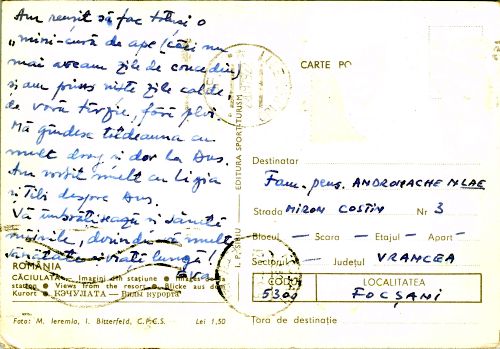 Am reușit să fac totuși o
"mini-cură de ape (căci nu
mai aveam zile de concediu)
și am prins niște zile calde,
de vară târzie, fără ploi.
Mă gândesc totdeauna cu
mult drag și dor la Dvs.
Am vorbit mult cu Ligia
și Tibi despre Dvs.
Vă îmbrățișează și sărută
mâinile, dorindu-vă multă
sănătate și viață lungă!
ROMÂNIA
CĂCIULATA — Imagini din stațiune • Images of the
station • Views from the resort • Blicke aus dem
Kurort • КЭЧУЛАТА — Виды курорта
Foto: M. Ieremia, I. Bitterfeld, C.P.C.S. Lei 1,50
EDITURA SPORT-TURISM
CARTE PO
Destinatar
Fam. pens. ANDROMACHE NLAE
Strada MIRON COSTIN Nr 3
Blocul — Scara — Etajul — Apart —
Sectorul — Județul VRANCEA
CODUL LOCALITATEA
5300 FOCȘANI
Țara de destinație